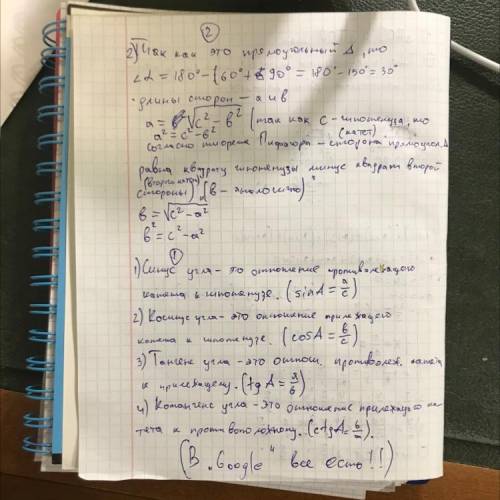 ②
2) Так как это прямоугольный Δ, то
∠α = 180° - (60° + 90° = 180° - 150° = 30°
· длины сторон - а и в
a = √c² - в² (так как с - гипотенуза, то
a² = c² - в²
(катет)
согласно теореме Пифагора - сторона прямоугол. Δ
равна квадрату гипотенузы минус квадрат второй
(второй катет)
стороны) (в - аналогично)
в = √c² - a²
в² = c² - a²
①
1) Синус угла - это отношение противолежащего
катета к гипотенузе. (sinA = a/c)
2) Косинус угла - это отношение прилежащего
катета к гипотенузе. (cosA = в/c)
3) Тангенс угла - это отнош. противолеж. катета
к прилежащему. (tgA = a/в)
4) Котангенс угла - это отношение прилежащего ка-
тета к противоположному. (ctgA = в/a).
(В „Google" все есть!!)